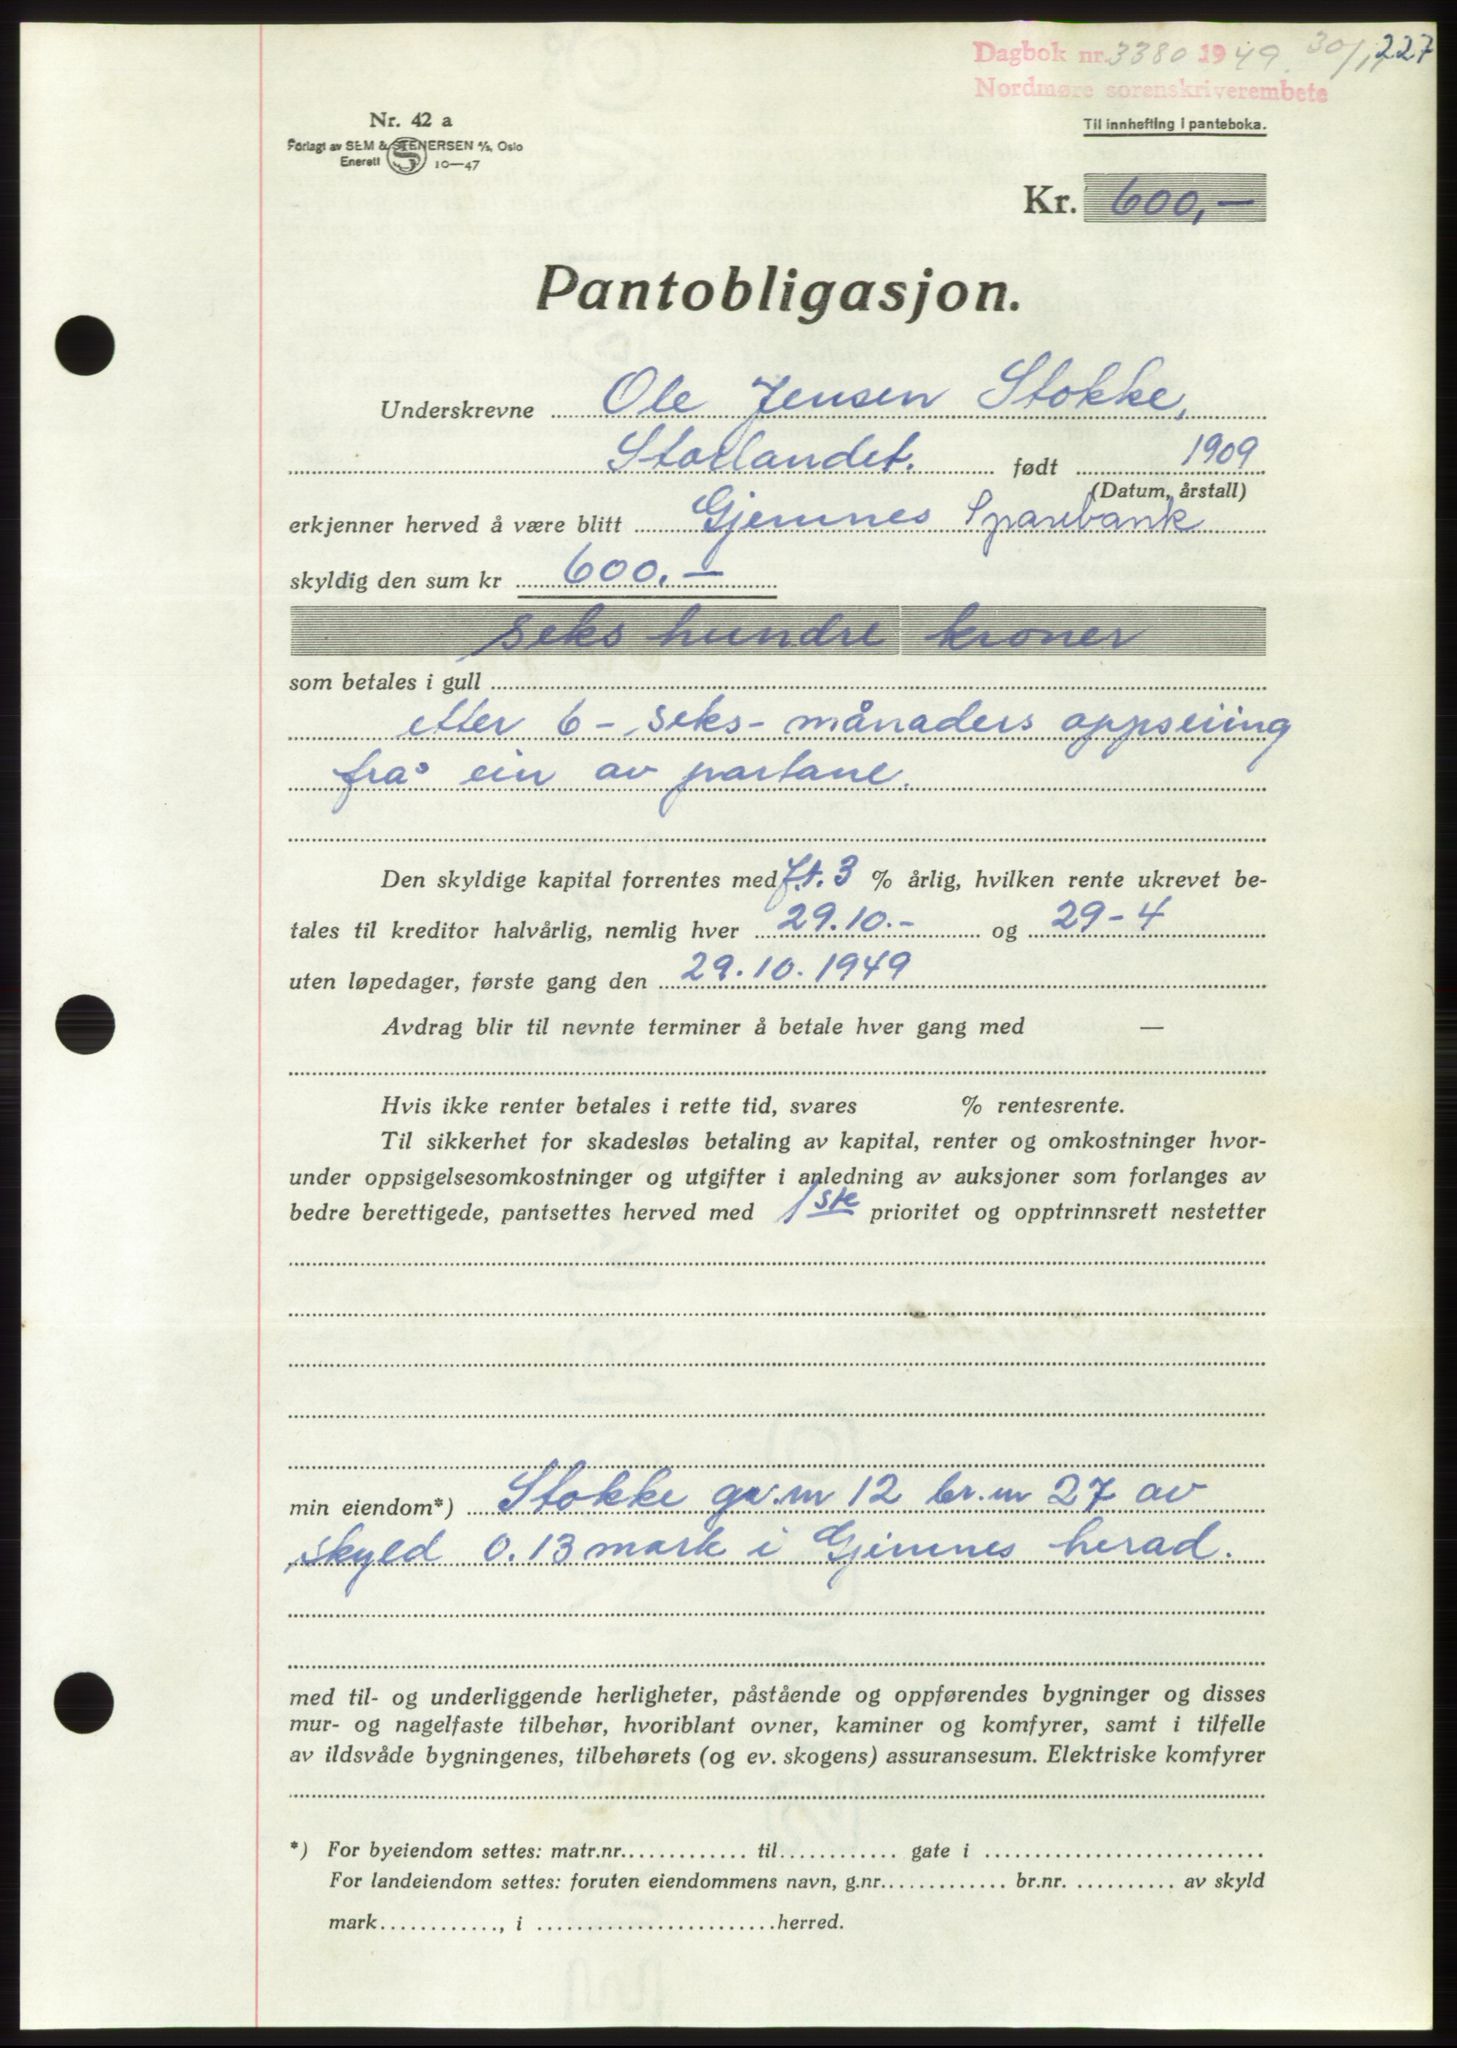 Dagbok nr. 3380 1949. 30/11 227
Nordmøre sorenskriverembete
Nr. 42 a
Forlagt av SEM & STENERSEN A/S, Oslo
Enerett 10—47
Til innhefting i panteboka.
Kr. 600,—
Pantobligasjon.
Underskrevne Ole Jensen Stokke,
Storlandet. født 1909
(Datum, årstall)
erkjenner herved å være blitt Gjemnes Sparebank
skyldig den sum kr 600.—
seks hundre kroner
som betales i gull
etter 6 - seks - månaders oppseiing
frå ein av partane.
Den skyldige kapital forrentes med f.t. 3 % årlig, hvilken rente ukrevet be-
tales til kreditor halvårlig, nemlig hver 29.10.- og 29-4
uten løpedager, første gang den 29.10.1949
Avdrag blir til nevnte terminer å betale hver gang med —
Hvis ikke renter betales i rette tid, svares % rentesrente.
Til sikkerhet for skadesløs betaling av kapital, renter og omkostninger hvor-
under oppsigelsesomkostninger og utgifter i anledning av auksjoner som forlanges av
bedre berettigede, pantsettes herved med 1ste prioritet og opptrinnsrett nestetter
min eiendom*) Stokke gr.nr 12 br.nr 27 av
skyld 0.13 mark i Gjemnes herad.
med til- og underliggende herligheter, påstående og oppførendes bygninger og disses
mur- og nagelfaste tilbehør, hvoriblant ovner, kaminer og komfyrer, samt i tilfelle
av ildsvåde bygningenes, tilbehørets (og ev. skogens) assuransesum. Elektriske komfyrer
*) For byeiendom settes: matr.nr. til gate i
For landeiendom settes: foruten eiendommens navn, g.nr. br.nr. av skyld
mark , i herred.